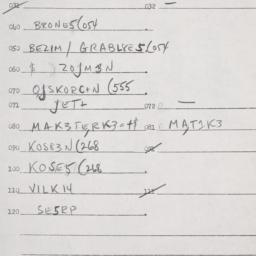 032 032 —
040 BRONES(054
050 BEZIM / GRABLRES(054
060 $ ZOJM3N
070 OJSKORC+N (555
072 JET+ 073 —
080 MAK3TERK3=+$ 081 MAT3K3
090 KOS83N(268
100 KOSES(268
110 VILK14
120 SESRP